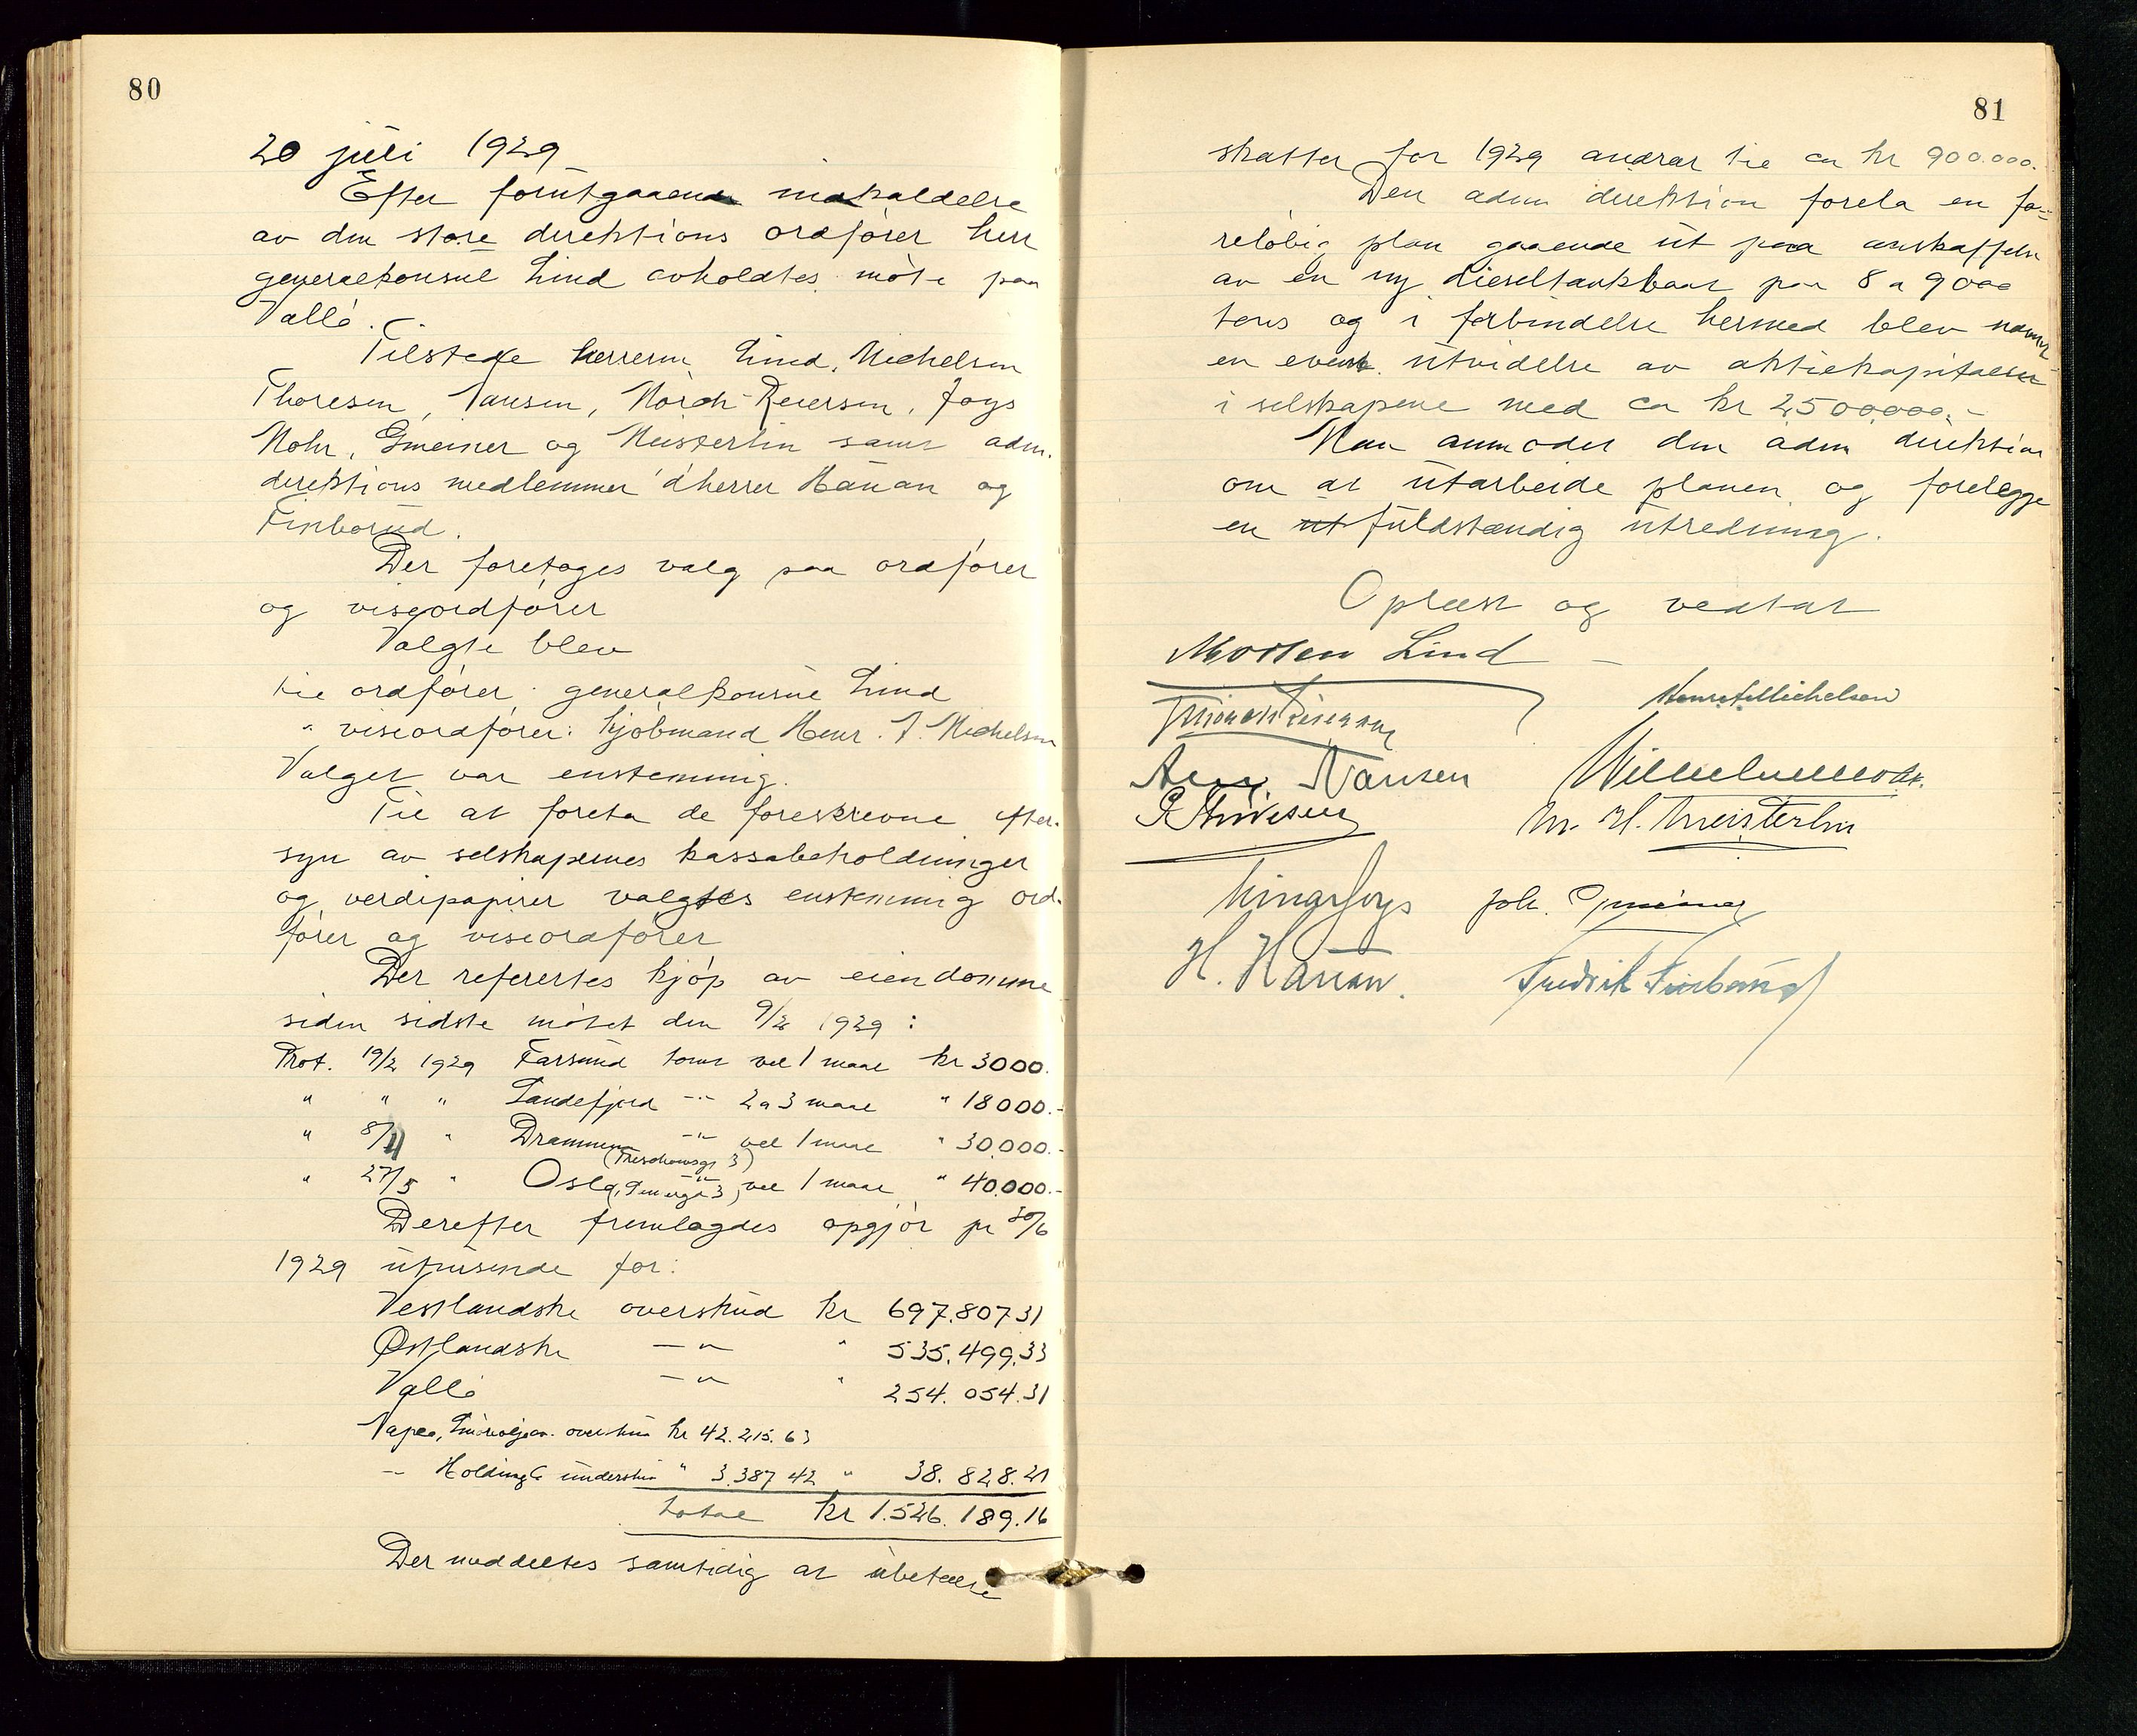 80
20 juli 1929
Efter forutgaaende indkaldelse
av den store direktions ordfører herr
generalkonsul Lind avholdtes møte paa
Vallø.
Tilstede herrerne Lind, Michelsen
Thoresen, Nansen, Mørch-Reiersen, Joys
Mohr, Gmeiner og Meisterlin samt adm.
direktions medlemmer d'herrer Hanan og
Finborud.
Der foretoges valg paa ordfører
og viseordfører
Valgte blev
til ordfører: generalkonsul Lind
" viseordfører: kjøbmand Henr. J. Michelsen
Valget var enstemmig.
Til at foreta de foreskrevne efter-
syn av selskapernes kassabeholdninger
og verdipapirer valgtes enstemmig ord-
fører og viseordfører
Der referertes kjøp av eiendomme
siden sidste møtet den 9/2 1929:
Prot. 19/2 1929 Farsund tomt vel 1 maal kr 3000.
" " " Sandefjord -"- 2 a 3 maal " 18000.-
" 8/4 " Drammen -"- vel 1 maal " 30.000.-
(Treschowsgt 3)
" 27/5 " Oslo, -"- vel 1 maal " 40.000.-
Derefter fremlagdes opgjør pr 30/6
1929 utvisende for:
Vestlandske overskud kr 697.807 31
Østlandske -"- " 535.499.33
Vallø -"- " 254.054.31
Smøreoljeco. overskud kr 42.215.63
-"- Holding Co underskud " 3.387 42 " 38.828.21
total kr 1.526.189.16
Der meddeeltes samtidig at ubetalte
81
skatter for 1929 andrar til ca kr 900.000.
Den adm direktion forela en fo-
reløbig plan gaaende ut paa anskaffelse
av en ny dieseltankbaat paa 8 a 9000
tons og i forbindelse hermed blev nævnt
en event. utvidelse av aktiekapitalen
i selskapene med ca kr 2500000.-
Man anmodet den adm direktion
om at utarbeide planen og forelegge
en ut fuldstændig utredning.
Oplæst og vedtat
Morten Lind
Henr J Michelsen
Mørch Reiersen
Aug. Nansen Wilhelm Mohr.
R Thoresen M. H. Meisterlin
Einar Joys Joh. Gmeiner
H. Hanan. Fredrik Finborud